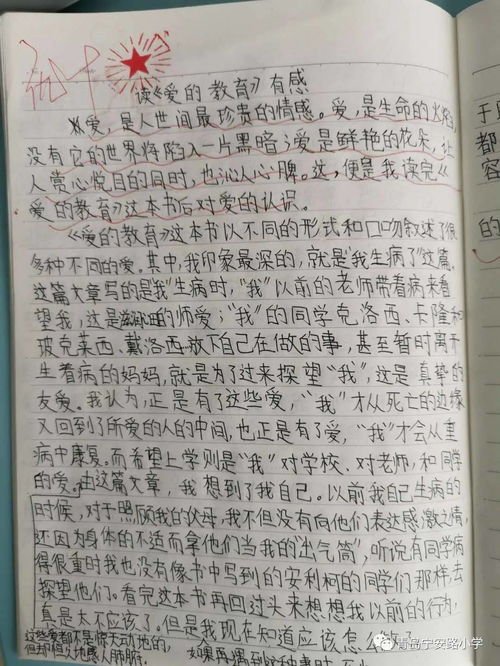 读《爱的教育》有感
爱，是人世间最珍贵的情感。爱，是生命的火焰，
没有它的世界将陷入一片黑暗；爱是鲜艳的花朵，让
人赏心悦目的同时，也沁人心脾。这，便是我读完《
爱的教育》这本书后对爱的认识。
《爱的教育》这本书以不同的形式和口吻叙述了很
多种不同的爱。其中，我印象最深的，就是“我生病了”这篇。
这篇文章写的是“我”生病时，“我”以前的老师带着病来看
望我，这是的师爱；“我”的同学克洛西、卡隆和
玻克莱西、戴洛西放下自己在做的事，甚至暂时离开
生着病的妈妈，就是为了过来探望“我”，这是真挚的
友爱。我认为，正是有了这些爱，“我”才从死亡的边缘
又回到了所爱的人的中间，也正是有了爱，“我”才会从重
病中康复。而希望上学则是“我”对学校、对老师，和同学
的爱。由这篇文章，我想到了我自己。以前我自己生病的
时候，对于照顾我的父母，我不但没有向他们表达感激之情，
还因为身体的不适而拿他们当我的“出气筒”，听说有同学病
得很重时我也没有像书中写到的安利柯的同学们那样，去
探望他们。看完这本书再回过头来想想我以前的行为，
真是太不应该了。但是我现在知道应该怎么
这些爱都不是惊天动地的，
但却恒久动感人肺腑。
如果再遇到这种事时
于
都
容
的
青岛宁安路小学